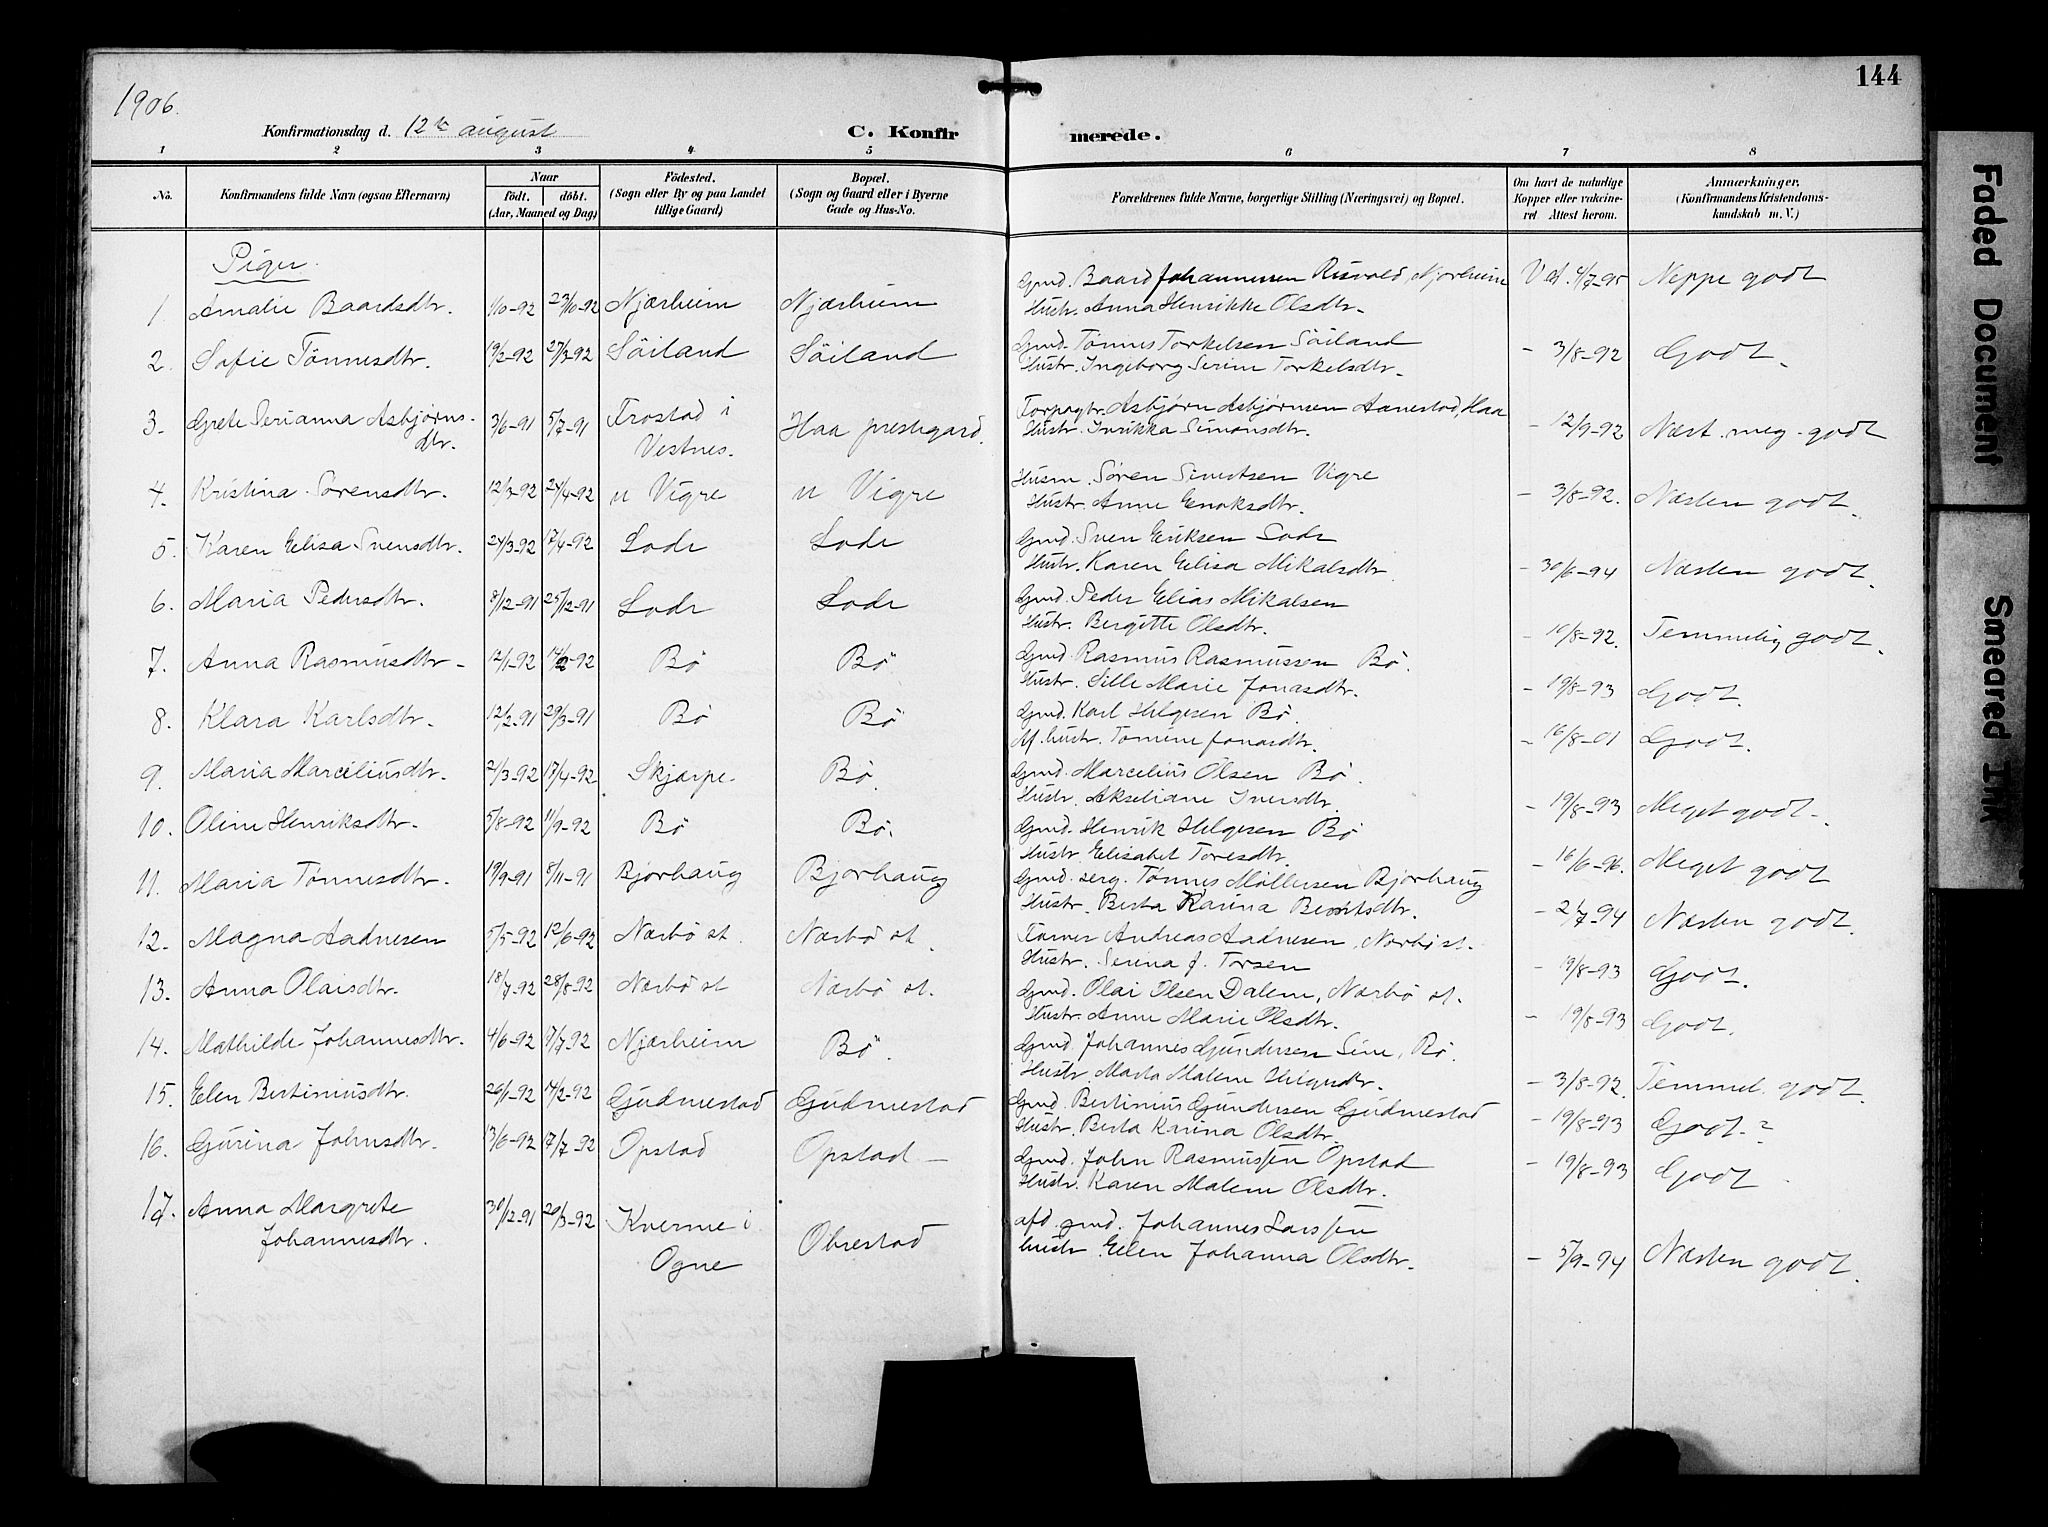 144
1906.
Konfirmationsdag d. 12te august
C. Konfirmerede.
1 2 3 4 5 6 7 8
No.
Konfirmandens fulde Navn (ogsaa Efternavn)
Naar
født. døbt.
(Aar, Maaned og Dag)
Fødested.
(Sogn eller By og paa Landet
tillige Gaard)
Bopæl.
(Sogn og Gaard eller i Byerne
Gade og Hus-No.
Forældrenes fulde Navne, borgerlige Stilling (Næringsvei) og Bopæl.
Om havt de naturlige
Kopper eller vakcine-
ret Attest herom.
Anmærkninger.
(Konfirmandens Kristendoms-
kundskab m. V.)
Piger.
1. Amalie Baardsdtr. 1/10-92 23/10-92 Njærheim Njærheim Gmd. Baard Johannessen Risvold, Njærheim V. at. 4/7-95 Neppe godt
Hustr. Anna Henrikke Olsdtr.
2. Sofie Tønnesdtr. 19/2-92 27/3-92 Söiland Söiland Gmd. Tønnes Torkelsen Söiland - 3/8-92 Godt.
Hustr. Ingeborg Serine Torkelsdtr.
3. Grete Serianna Asbjørns- 3/6-91 5/7-91 Frostad i Haa prestegard. Forpagtr. Asbjørn Asbjørnsen Aanestad, Haa - 12/9-92 Næst. meg. godt
dtr. Vestnes. Hustr. Inrikka Simonsdtr.
4. Kristina Sørensdtr. 12/3-92 24/4-92 n Vigre n Vigre Husm. Søren Sivertsen Vigre - 3/8-92. Næsten godt.
Hustr. Anne Enoksdtr.
5. Karen Elisa Svensdtr. 24/3-92 17/4-92 Lode Lode Gmd. Sven Eriksen Lode - 30/6-94 Næsten godt.
Hustr. Karen Elisa Mikalsdtr.
6. Maria Pedersdtr. 8/12-91 25/12-91 Lode Lode Gmd. Peder Elias Mikalsen - 10/8-92. Temmelig godt.
Hustr. Bergitte Olsdtr.
7. Anna Rasmusdtr 12/1-92 14/2-92 Bö Bö Gmd. Rasmus Rasmussen Bö. - 19/8-93 Godt.
Hustr. Sille Marie Jonasdtr.
8. Klara Karlsdtr. 12/2-91 29/3-91 Bö Bö Gmd. Karl Helgesen Bö. - 16/8-01 Godt.
Af. hustr. Tomine Jonasdtr.
9. Maria Marceliusdtr. 2/3-92 17/4-92 Skjærpe Bö. Gmd. Marcelius Olsen Bö. - 19/8-93 Meget godt.
Hustr. Akseliane Iversdtr.
10. Oline Henriksdtr. 5/8-92 11/9-92 Bö Bö. Gmd. Henrik Helgesen Bö - 16/6-96. Meget godt
Hustr. Elisabet Toresdtr.
11. Maria Tønnesdtr. 19/9-91 8/11-91 Bjorhaug Bjorhaug Gmd. serg. Tønnes Møllersen Bjorhaug - 2/7-94 Næsten godt.
Hustr. Berta Karina Berntsdtr.
12. Magna Aadnesen 5/5-92 12/6-92 Nærbö st. Nærbö st. Farver Andreas Aadnesen, Nærbö st. - 19/8-93 Godt.
Hustr. Serina J. Torsen
13. Anna Olaisdtr. 18/7-92 28/8-92 Nærbö st Nærbö st. Gmd. Olai Olsen Dalem, Nærbö st. - 19/8-93 Godt.
Hustr. Anne Marie Olsdtr.
14. Mathilde Johannesdtr. 4/6-92 17/7-92 Njærheim Bö. Gmd. Johannes Gundersen Sine, Bö. - 3/8-92. Temmel. godt.
Hustr. Marta Malene Helgesdtr.
15. Elen Bertiniusdtr. 26/1-92 14/2-92 Gudmestad Gudmestad Gmd. Bertinius Gundersen Gudmestad - 19/8-93 Godt.?
Hustr. Berta Karina Olsdtr.
16. Gurina Johnsdtr. 13/6-92 17/7-92 Opstad Opstad Gmd. John Rasmussen Opstad - 19/8-93 Godt
Hustr. Karen Malene Olsdtr.
17. Anna Margrete 30/12-91 20/3-92 Kverme i Obrestad afd. gmd. Johannes Larssen - 5/9-94 Næsten godt.
Johannesdtr. Ogne hustr. Elen Johanna Olsdtr.
Faded Document
Smeared Ink